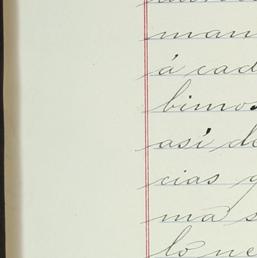 man
á cad
bimos
así de
cias q
ma s
ló ne